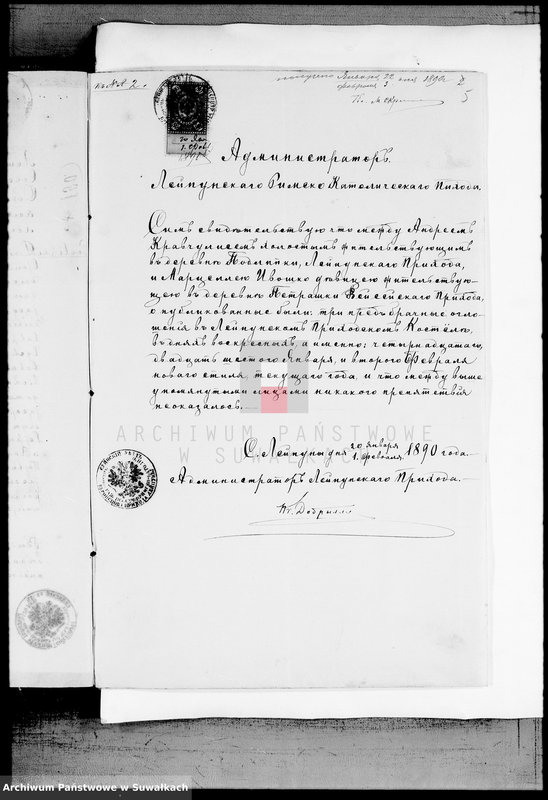 къ №А 2.
получено Января 22 дня 1890
февраля 3
5
20 Янв
1 Февр
Администраторъ
Лейпунскаго Римско Католическаго Прихода.
Симъ свидѣтельствую что между Андреемъ
Кравчулисемъ холостымъ жительствующимъ
въ деревнѣ Лейпунскаго Прихода,
и Марцеллею Ивошко дѣвицею жительствую-
щею въ деревнѣ Петрашки Вейсейскаго Прихода,
опубликованные были: три предъбрачные огло-
шенія въ Лейпунскомъ Приходскомъ Костёлѣ,
въ дняхъ воскресныхъ, а именно: четырнадцатаго,
двадцать шестого Января, и второго Февраля
новаго стиля, текущаго года, и что между выше
упомянутыми лицами никакого препятствія
неоказалось.
С. Лейпуны дня 20 Января
1. Февраля 1890 года.
Администраторъ Лейпунскаго Прихода.
Кс.
ARCHIWUM PAŃSTWOWE
W SUWAŁKACH
Archiwum Państwowe w Suwałkach